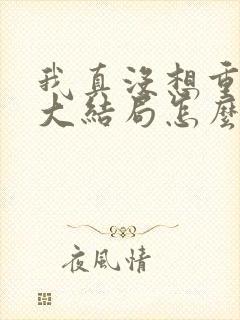 我真没想重
大結局怎麼
夜風情